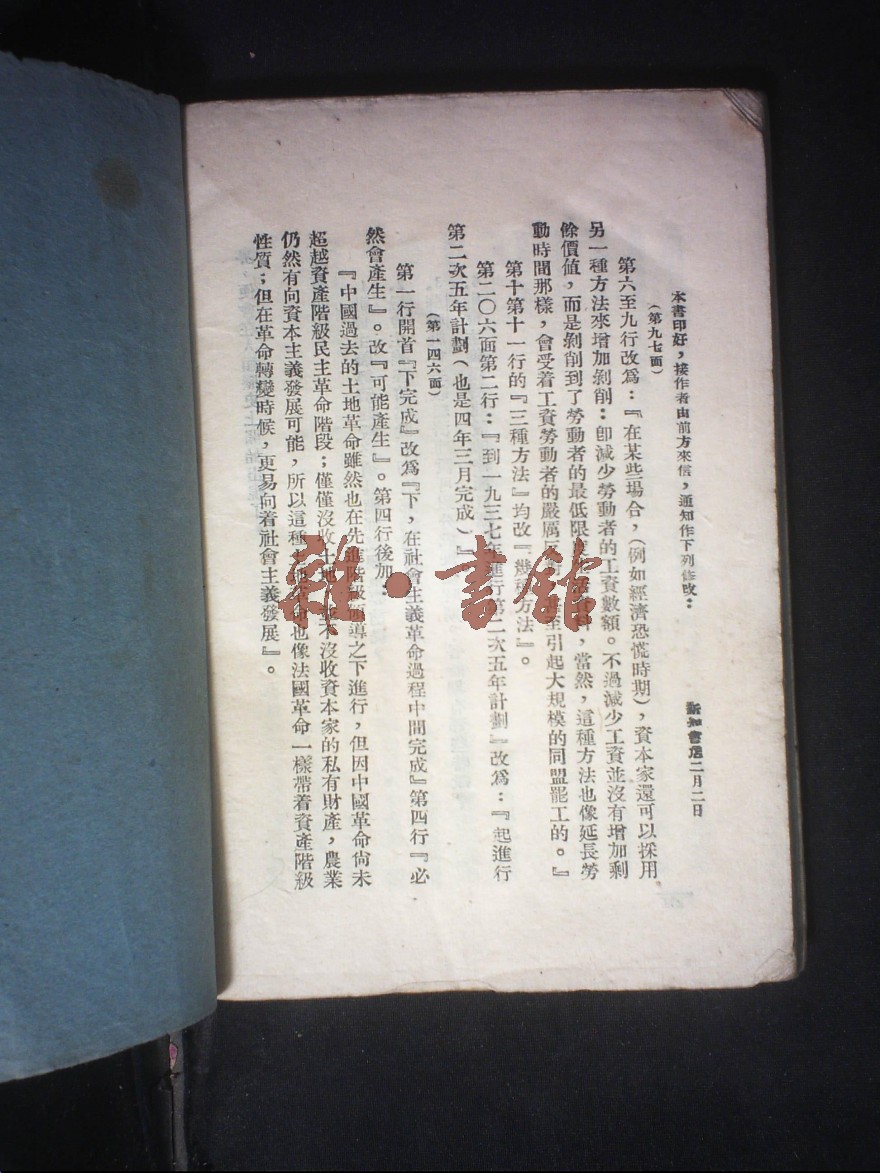 本書印好，接作者由前方來信，通知作下列修改：
新知書店二月二日
（第九七面）
第六至九行改爲：『在某些塲合，（例如經濟恐慌時期），資本家還可以採用
另一種方法來增加剝削：卽減少勞動者的工資數額。不過減少工資並沒有增加剩
餘價値，而是剝削到了勞動者的最低限度，當然，這種方法也像延長勞
動時間那樣，會受着工資勞動者的嚴厲反，甚至引起大規模的同盟罷工的。』
第十第十一行的『三種方法』均改『幾種方法』。
第二〇六面第二行：『到一九三七年進行第二次五年計劃』改爲：『起進行
第二次五年計劃（也是四年三月完成）』
（第一四六面）
第一行開首『下完成』改爲『下，在社會主義革命過程中間完成』第四行『必
然會產生』。改『可能產生』。第四行後加：
『中國過去的土地革命雖然也在先進階級領導之下進行，但因中國革命尙未
超越資產階級民主革命階段；僅僅沒收土地，並不沒收資本家的私有財產，農業
仍然有向資本主義發展可能，所以這種土地革命也像法國革命一樣帶着資產階級
性質；但在革命轉變時候，更易向着社會主義發展』。
雜·書館